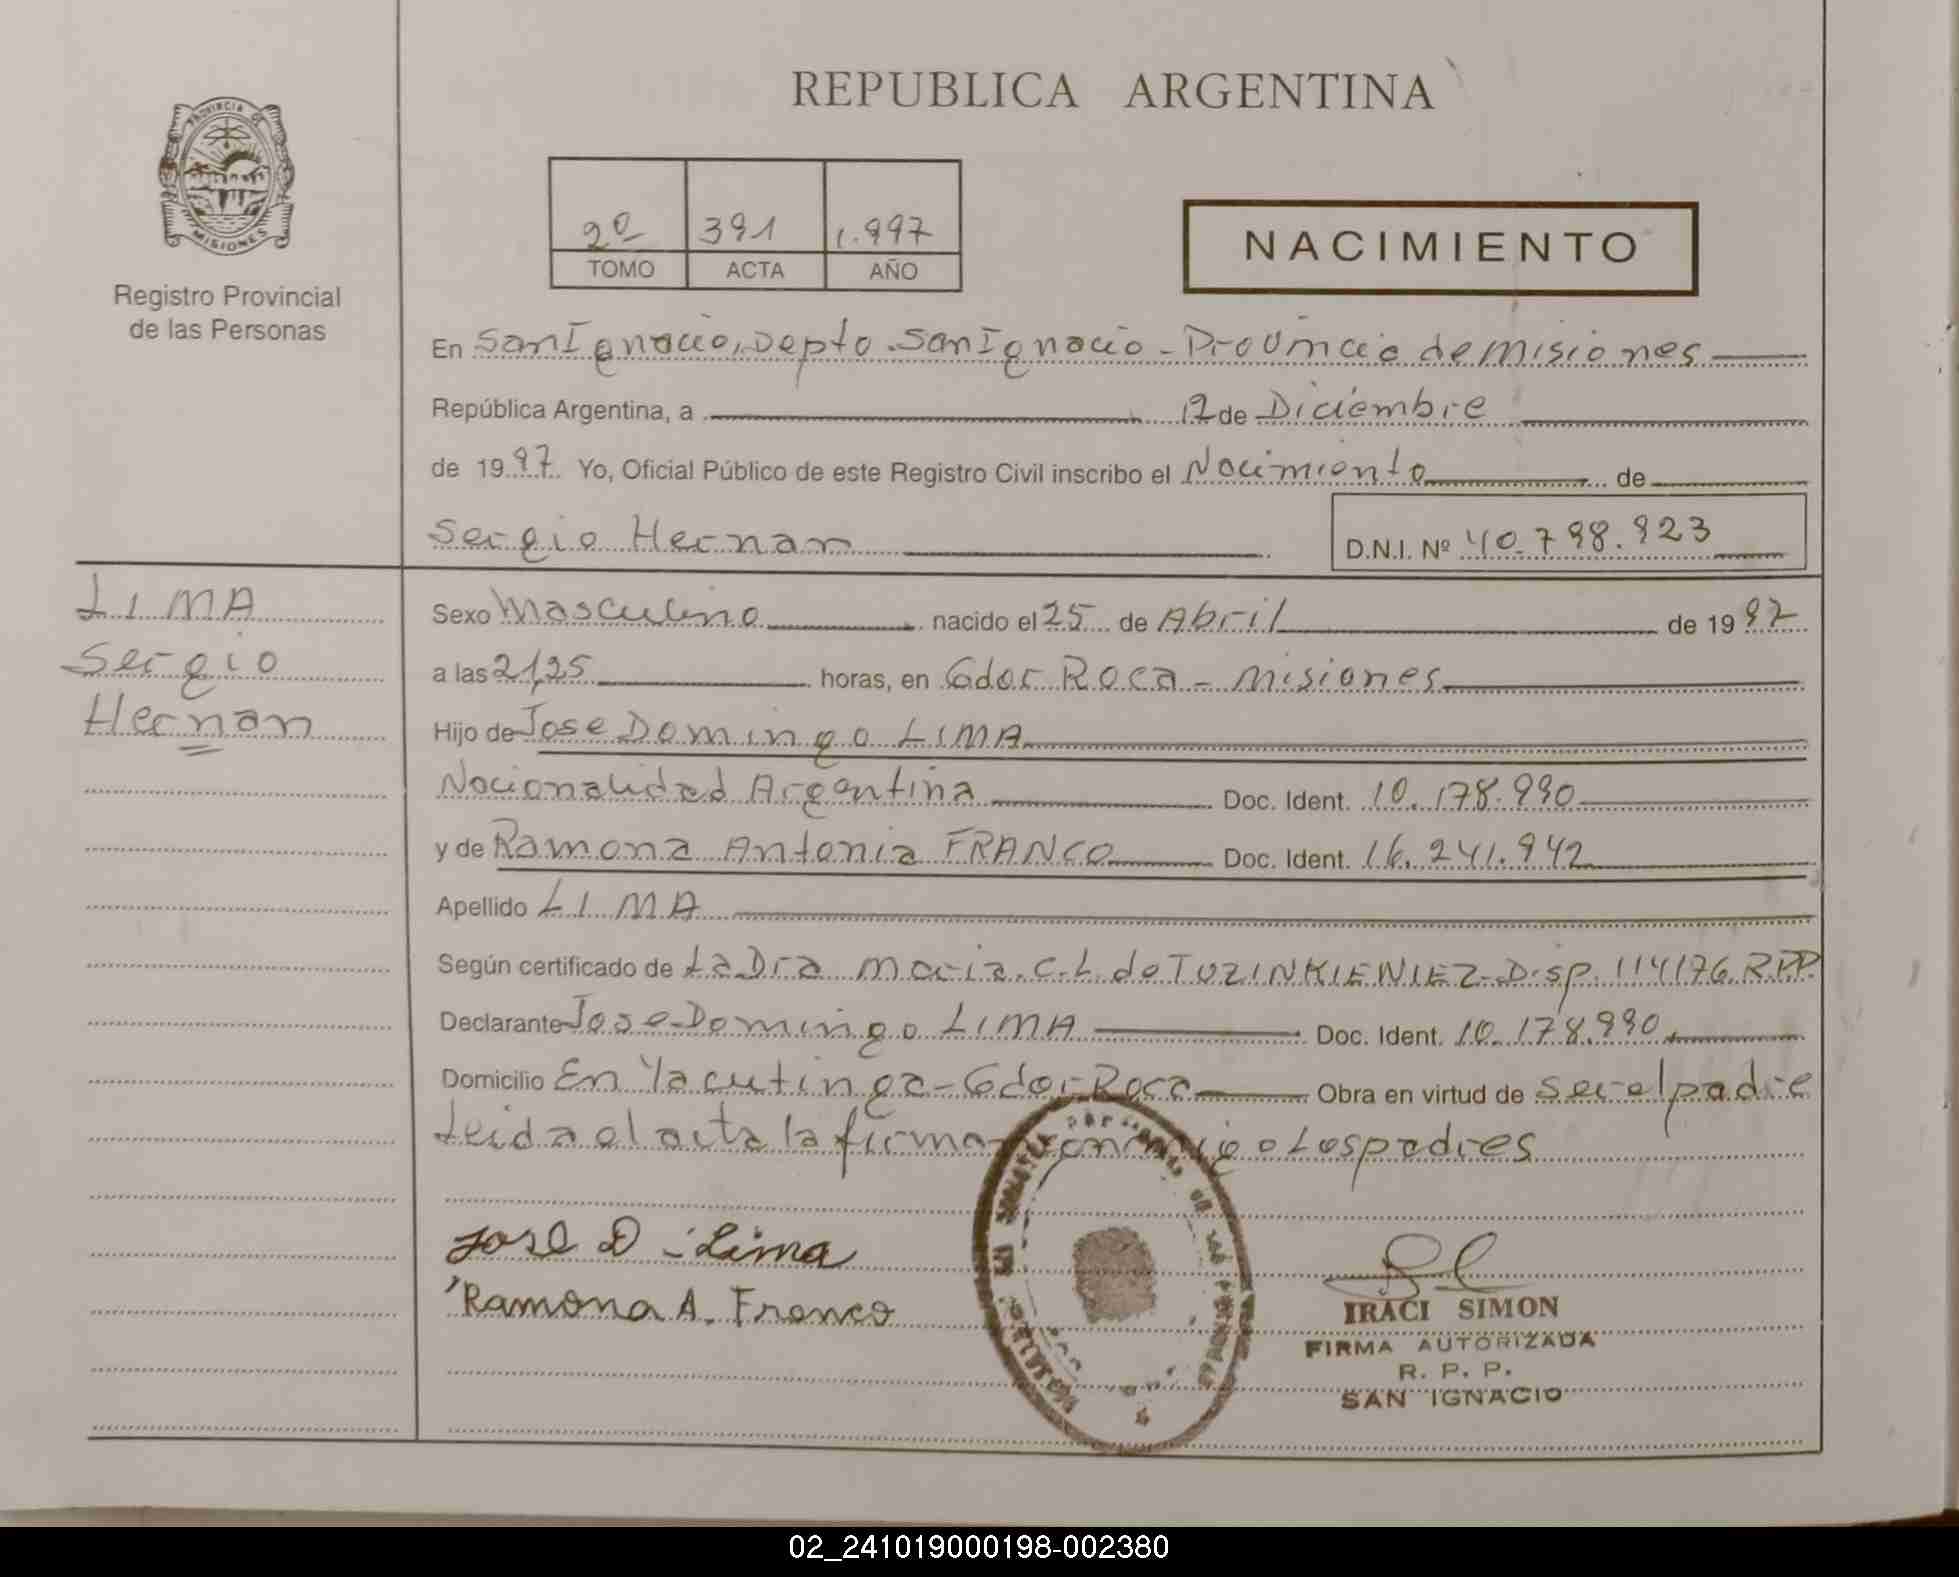 REPUBLICA ARGENTINA
PROVINCIA DE
MISIONES
Registro Provincial
de las Personas
2º 391 1.997
TOMO ACTA AÑO
NACIMIENTO
En San Ignacio, Depto. San Ignacio - Provincia de misiones
República Argentina, a 17 de Diciembre
de 19 97 Yo, Oficial Público de este Registro Civil inscribo el Nacimiento de
Sergio Hernan D.N.I. Nº 40.798.923
LIMA
Sergio
Hernan
Sexo Masculino nacido el 25 de Abril de 19 97
a las 21,25 horas, en Gdor Roca - misiones
Hijo de Jose Domingo LIMA
Nacionalidad Argentina Doc. Ident. 10.178.990
y de Ramona Antonia FRANCO Doc. Ident. 16.241.942
Apellido LIMA
Según certificado de La Dra Maria C.L. de TUZINKIENIEZ - Disp. 114176 R.P.P.
Declarante Jose Domingo LIMA Doc. Ident. 10.178.990
Domicilio En Yacutinga - Gdor Roca Obra en virtud de ser el padre
Leida el acta la firman conmigo Los padres
Jose D. Lima
Ramona A. Franco
IRACI SIMON
FIRMA AUTORIZADA
R. P. P.
SAN IGNACIO
02_241019000198-002380